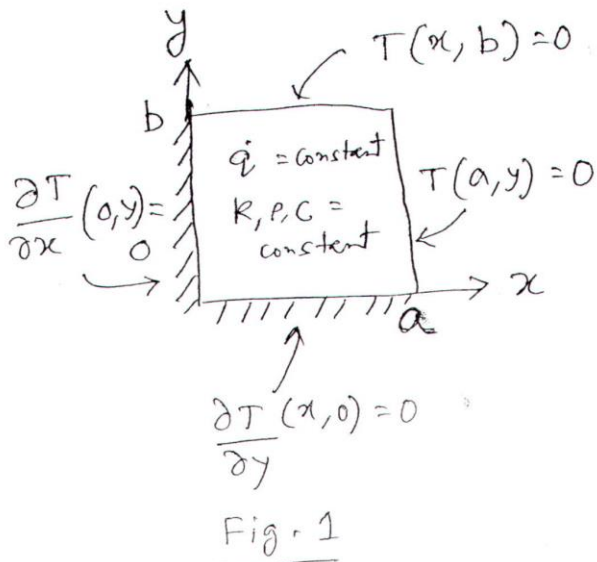 y
T(x, b) = 0
b
q̇ = constant
k, ρ, C =
constant
T(a, y) = 0
∂T/∂x (0, y) =
0
x
a
∂T/∂y (x, 0) = 0
Fig. 1